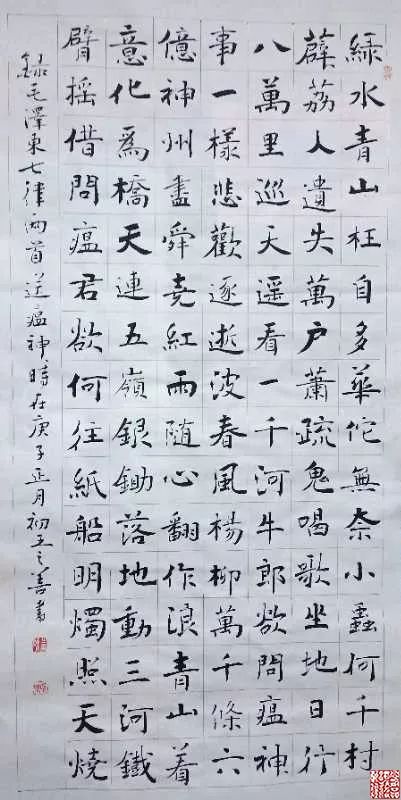 綠水青山枉自多華佗無奈小蟲何千村
薜荔人遺失萬戶蕭疏鬼唱歌坐地日行
八萬里巡天遥看一千河牛郎欲問瘟神
事一樣悲歡逐逝波春風楊柳萬千條六
億神州盡舜堯紅雨隨心翻作浪青山着
意化爲橋天連五嶺銀鋤落地動三河鐵
臂摇借問瘟君欲何往紙船明燭照天燒
錄毛澤東七律兩首送瘟神時在庚子正月初五之善書